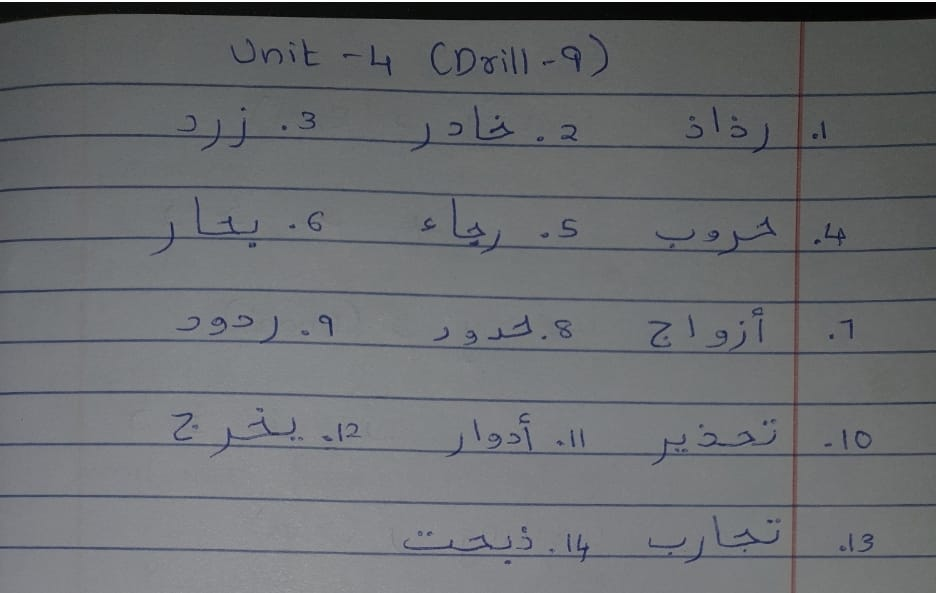 Unit - 4 (Drill - 9)
1. رذاذ 2. خادر 3. زرد
4. حروب 5. رجاء 6. بحار
7. أزواج 8. حدود 9. ردود
10. تحذير 11. أدوار 12. يخرج
13. تجارب 14. ذبحت